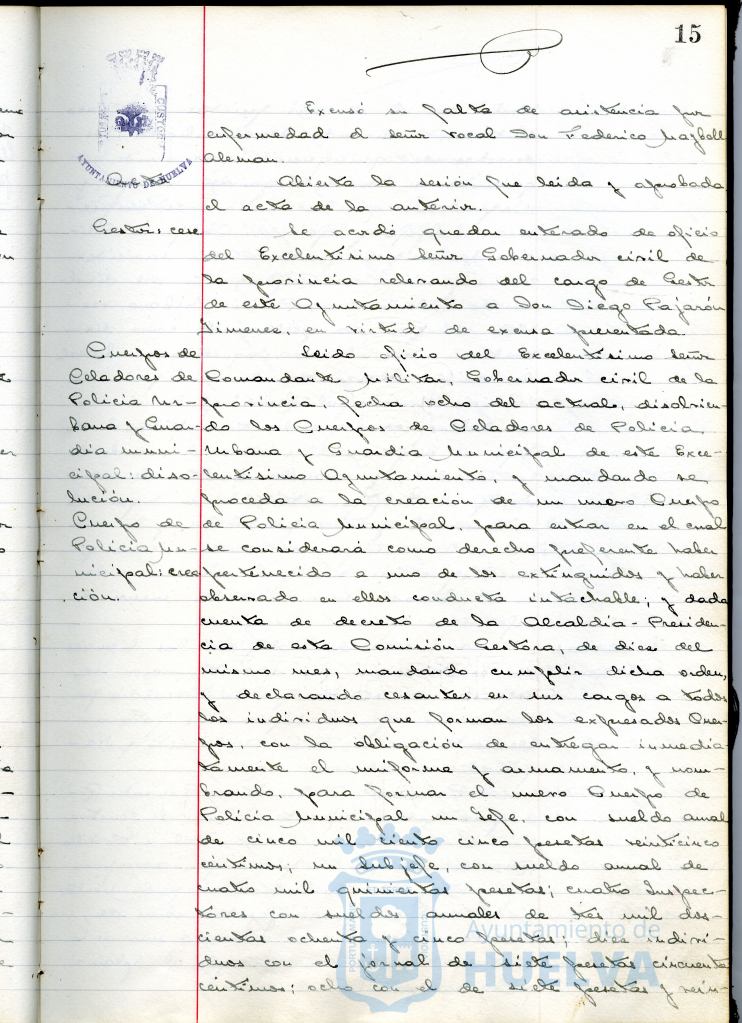 15
Excusó su falta de asistencia por
enfermedad el señor vocal Don Federico Mayboll
Aleman.
AYUNTAMIENTO DE HUELVA
Acta
Abierta la sesión fue leida y aprobada
el acta de la anterior.
Gestor: cese
Se acordó quedar enterado de oficio
del Excelentísimo Señor Gobernador civil de
la provincia relevando del cargo de Gestor
de este Ayuntamiento a Don Diego Pajarón
Jimenez, en virtud de excusa presentada.
Cuerpos de
Celadores de
Policia Ur-
bana y Guar-
dia muni-
cipal: diso-
lución.
Cuerpo de
Policia Mu-
nicipal: crea
ción.
Leido oficio del Excelentísimo Señor
Comandante Militar, Gobernador civil de la
provincia, fecha ocho del actual, disolvien-
do los Cuerpos de Celadores de Policia
Urbana y Guardia Municipal de este Exce-
lentísimo Ayuntamiento, y mandando se
proceda a la creación de un nuevo Cuerpo
de Policia Municipal, para entrar en el cual
se considerará como derecho preferente haber
pertenecido a uno de los extinguidos y haber
observado en ellos conducta intachable; y dada
cuenta de decreto de la Alcaldía-Presiden-
cia de esta Comisión Gestora, de diez del
mismo mes, mandando cumplir dicha orden,
y declarando cesantes en sus cargos a todos
los individuos que forman los expresados Cuer-
pos, con la obligación de entregar inmedia-
tamente el uniforme y armamento, y nom-
brando, para formar el nuevo Cuerpo de
Policia Municipal un Jefe, con sueldo anual
de cinco mil ciento cinco pesetas veinticinco
céntimos; un Subjefe, con sueldo anual de
cuatro mil quinientas pesetas; cuatro Inspec-
tores con sueldos anuales de tres mil dos-
cientas ochenta y cinco pesetas; diez indivi-
duos con el jornal de siete pesetas cincuenta
céntimos; ocho con el de siete pesetas y vein-
Ayuntamiento de
HUELVA